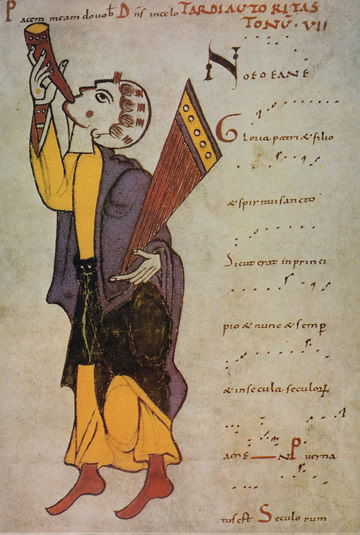 Pacem meam do vob D Dns in celo TARDI AUTORITAS
TONU · VII
NOEOEANE
Gloria patri & filio
& spiritui sancto
Sicut erat in princi
pio & nunc & semp
& in secula seculorum
AMEN Puer na
tus est Seculorum